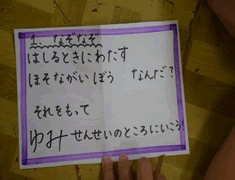 1 なぞなぞ
はしるときにわたす
ほそながいぼう なんだ?
それをもって
ゆみせんせいのところにいこう!